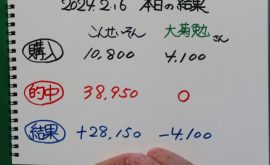 2024.2.16 本日の結果
こんせいそん 大菊勉さん
購入 10,800 4,100
的中 38,950 0
結果 +28,150 -4,100